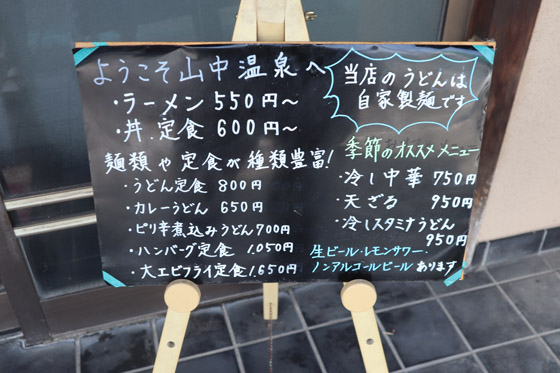 ようこそ山中温泉へ
・ラーメン 550円～
・丼.定食 600円～
麺類や定食が種類豊富!
・うどん定食 800円
・カレーうどん 650円
・ピリ辛煮込みうどん700円
・ハンバーグ定食 1.050円
・大エビフライ定食1.650円
当店のうどんは
自家製麺です
季節のオススメメニュー
・冷し中華 750円
・天ざる 950円
・冷しスタミナうどん
950円
生ビール・レモンサワー・
ノンアルコールビールあります